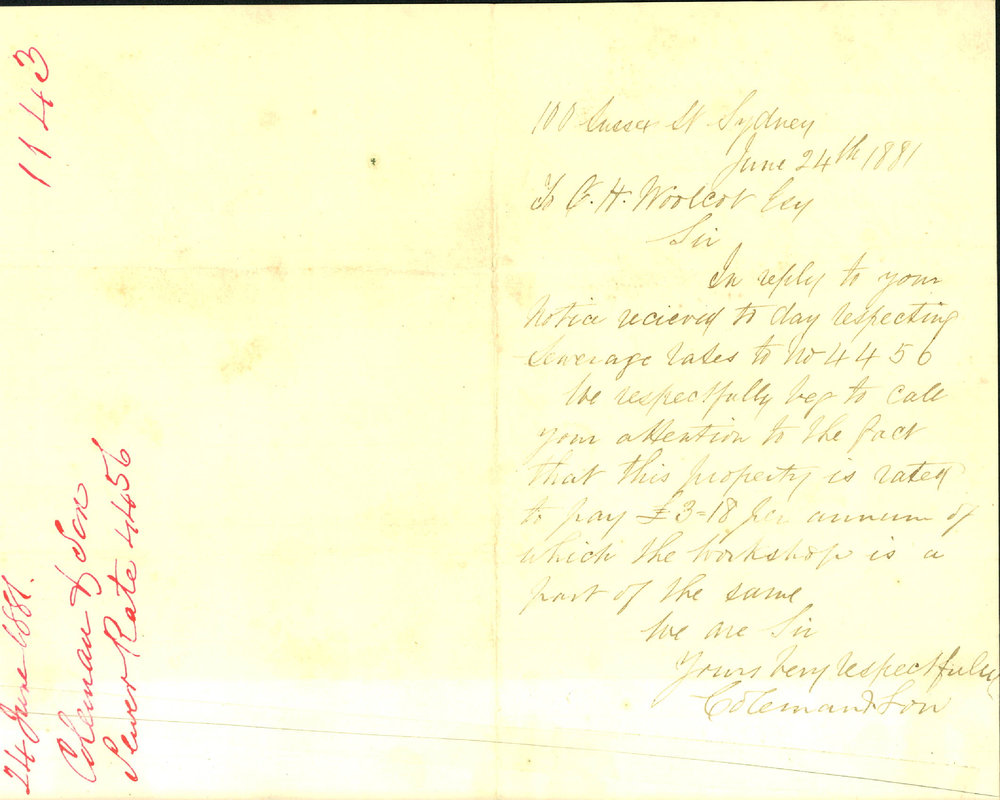 1143
24 June 1881.
Coleman & Son
Sewer Rate 4456
100 Sussex St Sydney
June 24th 1881
To C. H. Woolcot Esq
Sir
In reply to your
Notice recieved to day respecting
Sewerage rates to No 4456
We respectfully beg to call
your attention to the fact
that this property is rated
to pay £3=18 per annum of
which the workshop is a
part of the same
We are Sir
Yours very respectfully
Coleman & Son